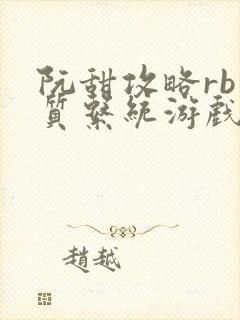 阮甜攻略rb
質系統游戲
趙越